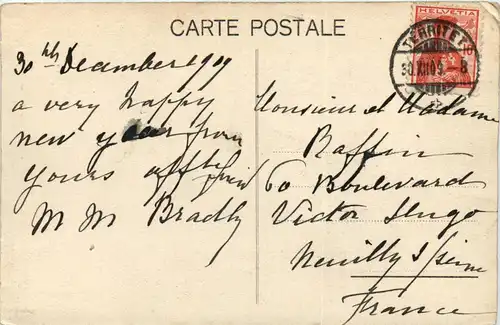 CARTE POSTALE
HELVETIA
10
TERRITET
30.XII.09.-8
30th December 1909
a very happy
new year from
yours afft
M M Bradly
Monsieur et Madame
Raffin
60 Boulevard
Victor Hugo
Neuilly s/seine
France